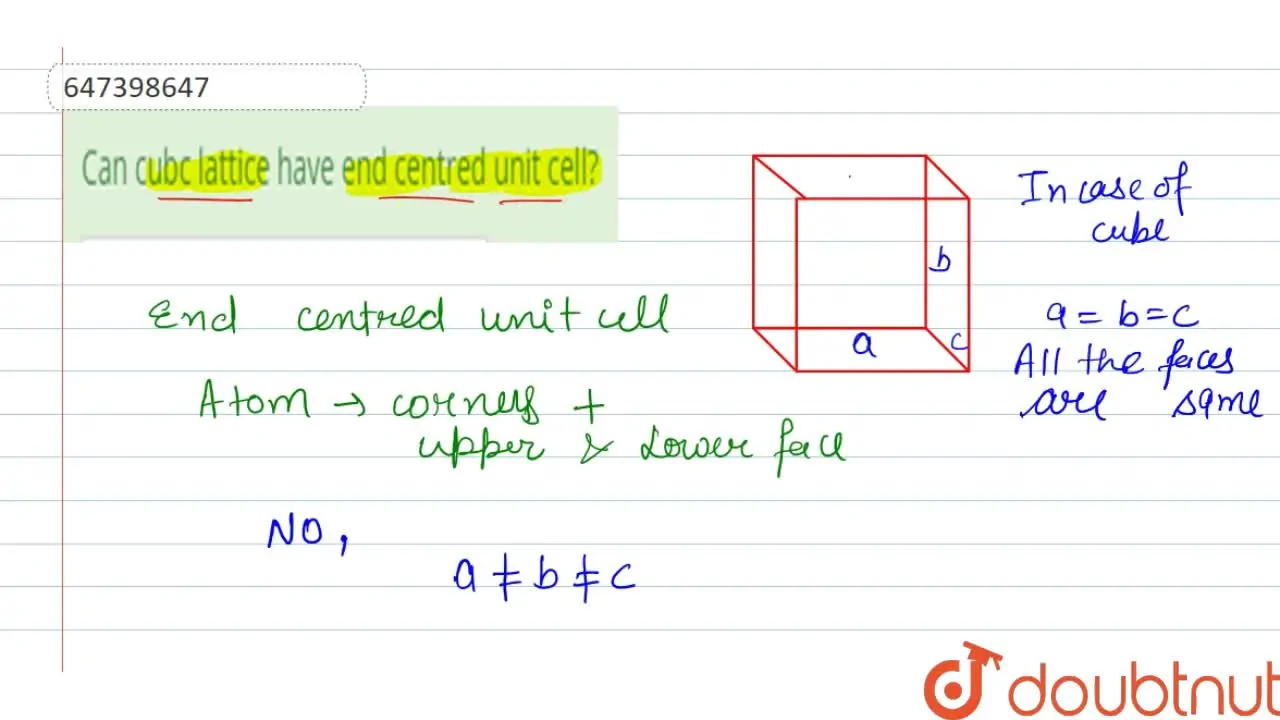 647398647
Can cubc lattice have end centred unit cell?
End centred unit cell
Atom → corners +
upper & Lower face
NO,
a ≠ b ≠ c
b
a
c
In case of
cube
a = b = c
All the faces
are same
doubtnut